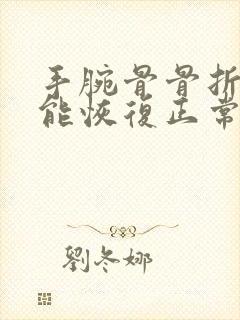 手腕骨骨折
能恢復正常
劉冬娜